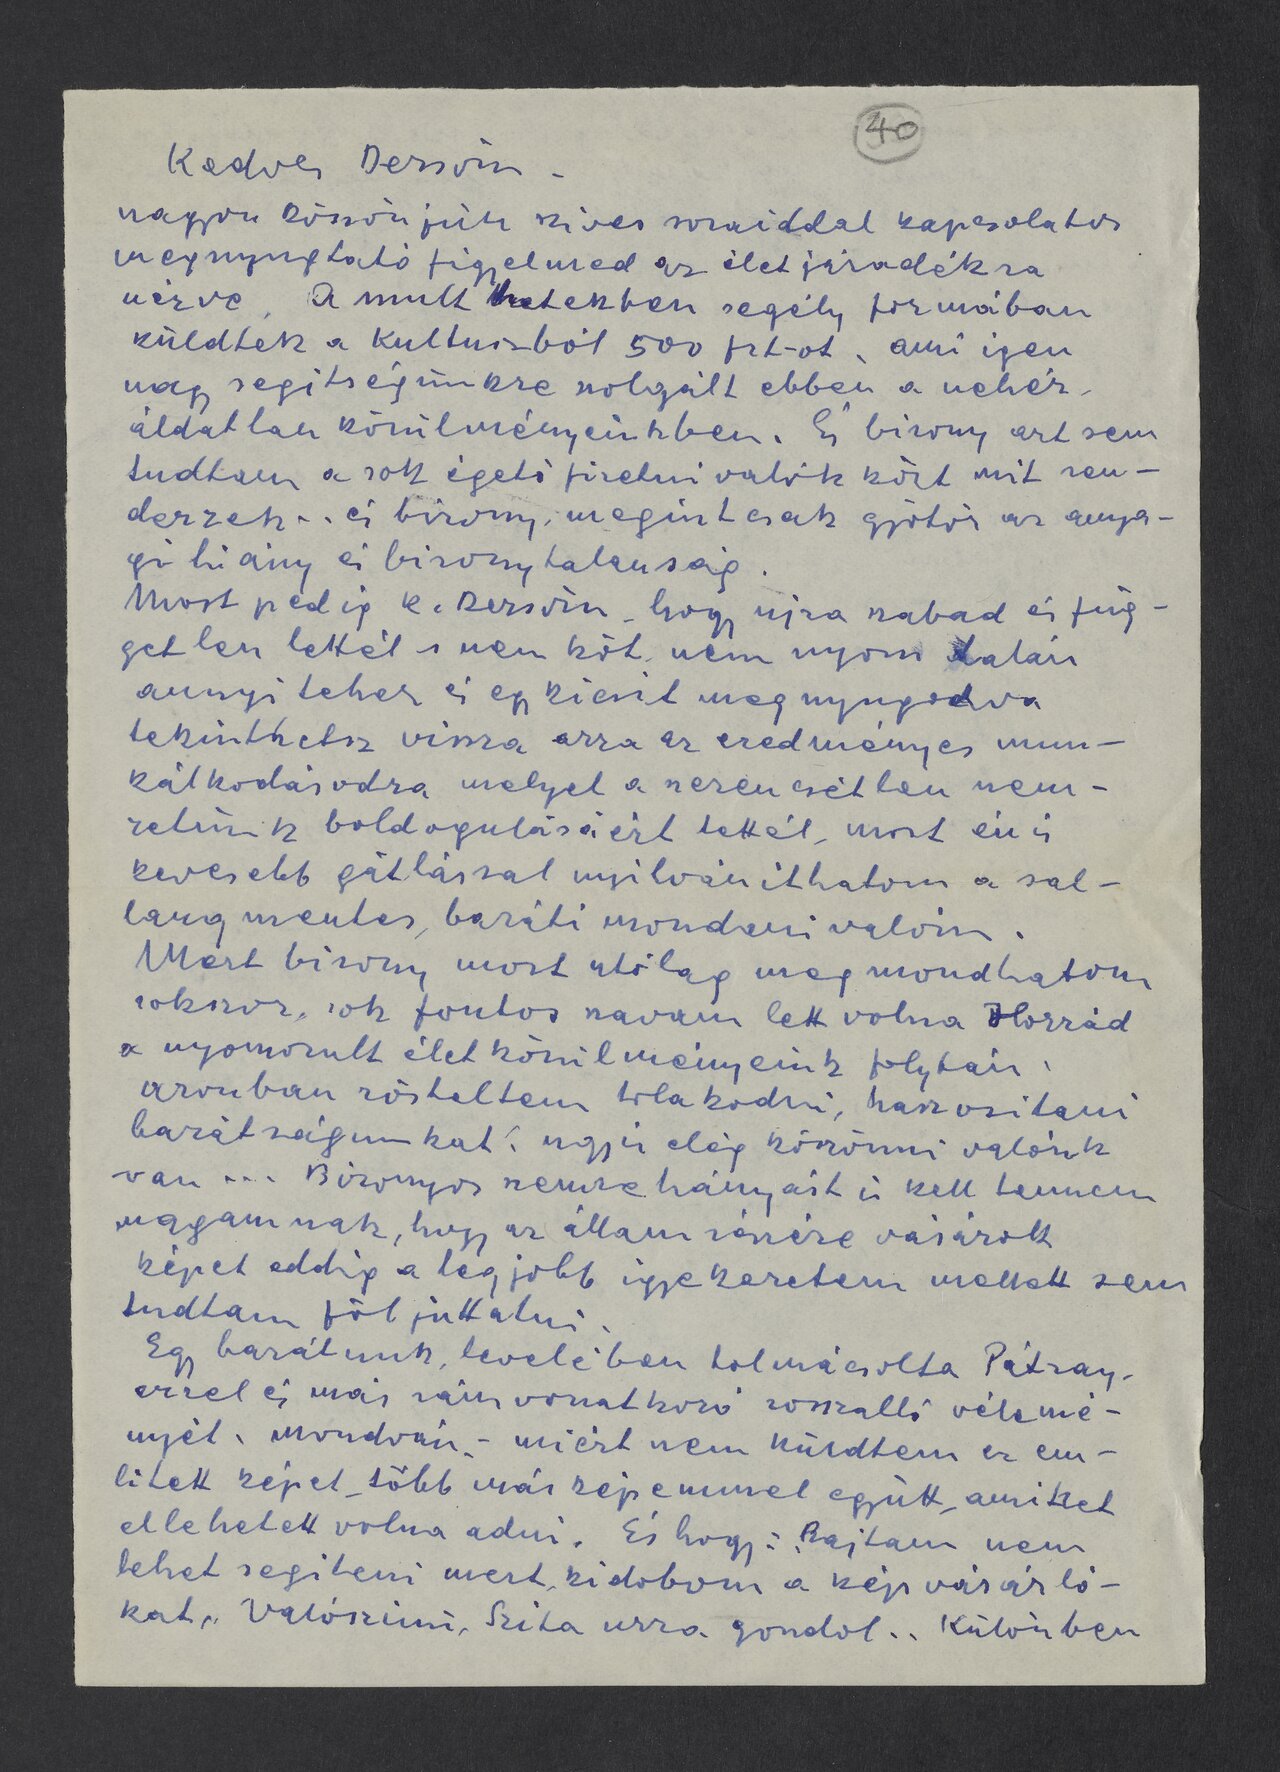 40
Kedves Dersőm -
nagyon köszönjük szives soraiddal kapcsolatos
megnyugtató figyelmed az életjáradékra
nézve. A mult hetekben segély formában
küldtek a Kultusz-ból 500 frt-ot, ami igen
nagy segitségünkre szolgált ebben a nehéz,
áldatlan körülményeinkben. És bizony azt sem
tudtam a sok égető fizetni valók közt mit ren-
dezzek.. és bizony, megint csak gyötör az anya-
gi hiány és bizonytalanság.
Most pedig k. Dersőm, hogy ujra szabad és füg-
getlen lettél s nem köt, nem nyom talán
annyi teher és egy kicsit megnyugodva
tekinthetsz vissza arra az eredményes mun-
kálkodásodra melyet a szerencsétlen nem-
zetünk boldogulásáért tettél, most én is
kevesebb gátlással nyilvánithatom a sal-
langmentes, baráti mondanivalóim.
Mert bizony most utólag megmondhatom
sokszor, sok fontos szavam lett volna Hozzád
a nyomorult életkörülményeink folytán.
azonban rösteltem tolakodni, hasznositani
barátságunkat. ugyis elég köszönni valónk
van ... Bizonyos szemrehányást is kell tennem
magamnak, hogy az állam részére vásárolt
képet eddig a legjobb igyekezetem mellett sem
tudtam föl juttatni.
Egy barátunk, levelében tolmácsolta Pátzay,
ezzel és más rám vonatkozó rosszalló vélemé-
nyét, mondván, - miért nem küldtem ez em-
litett képet, több más képemmel együtt, amiket
ellehetett volna adni. És hogy: Rajtam nem
lehet segiteni mert, kidobom a kép vásárló-
kat. Valószinü, Szita urra gondol.. Különben